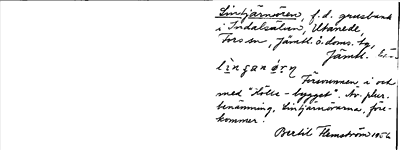 Lintjärnören, f. d. grusbank
i Indalsälven, Utanede,
Fors sn, Jämtl. ö. doms. tg,
Jämtl. län
Försvunnen i och
med "Hölle-bygget". Av. plur.
benämning, Lintjärnörarna, före-
kommer.
Bertil Flemström 1956